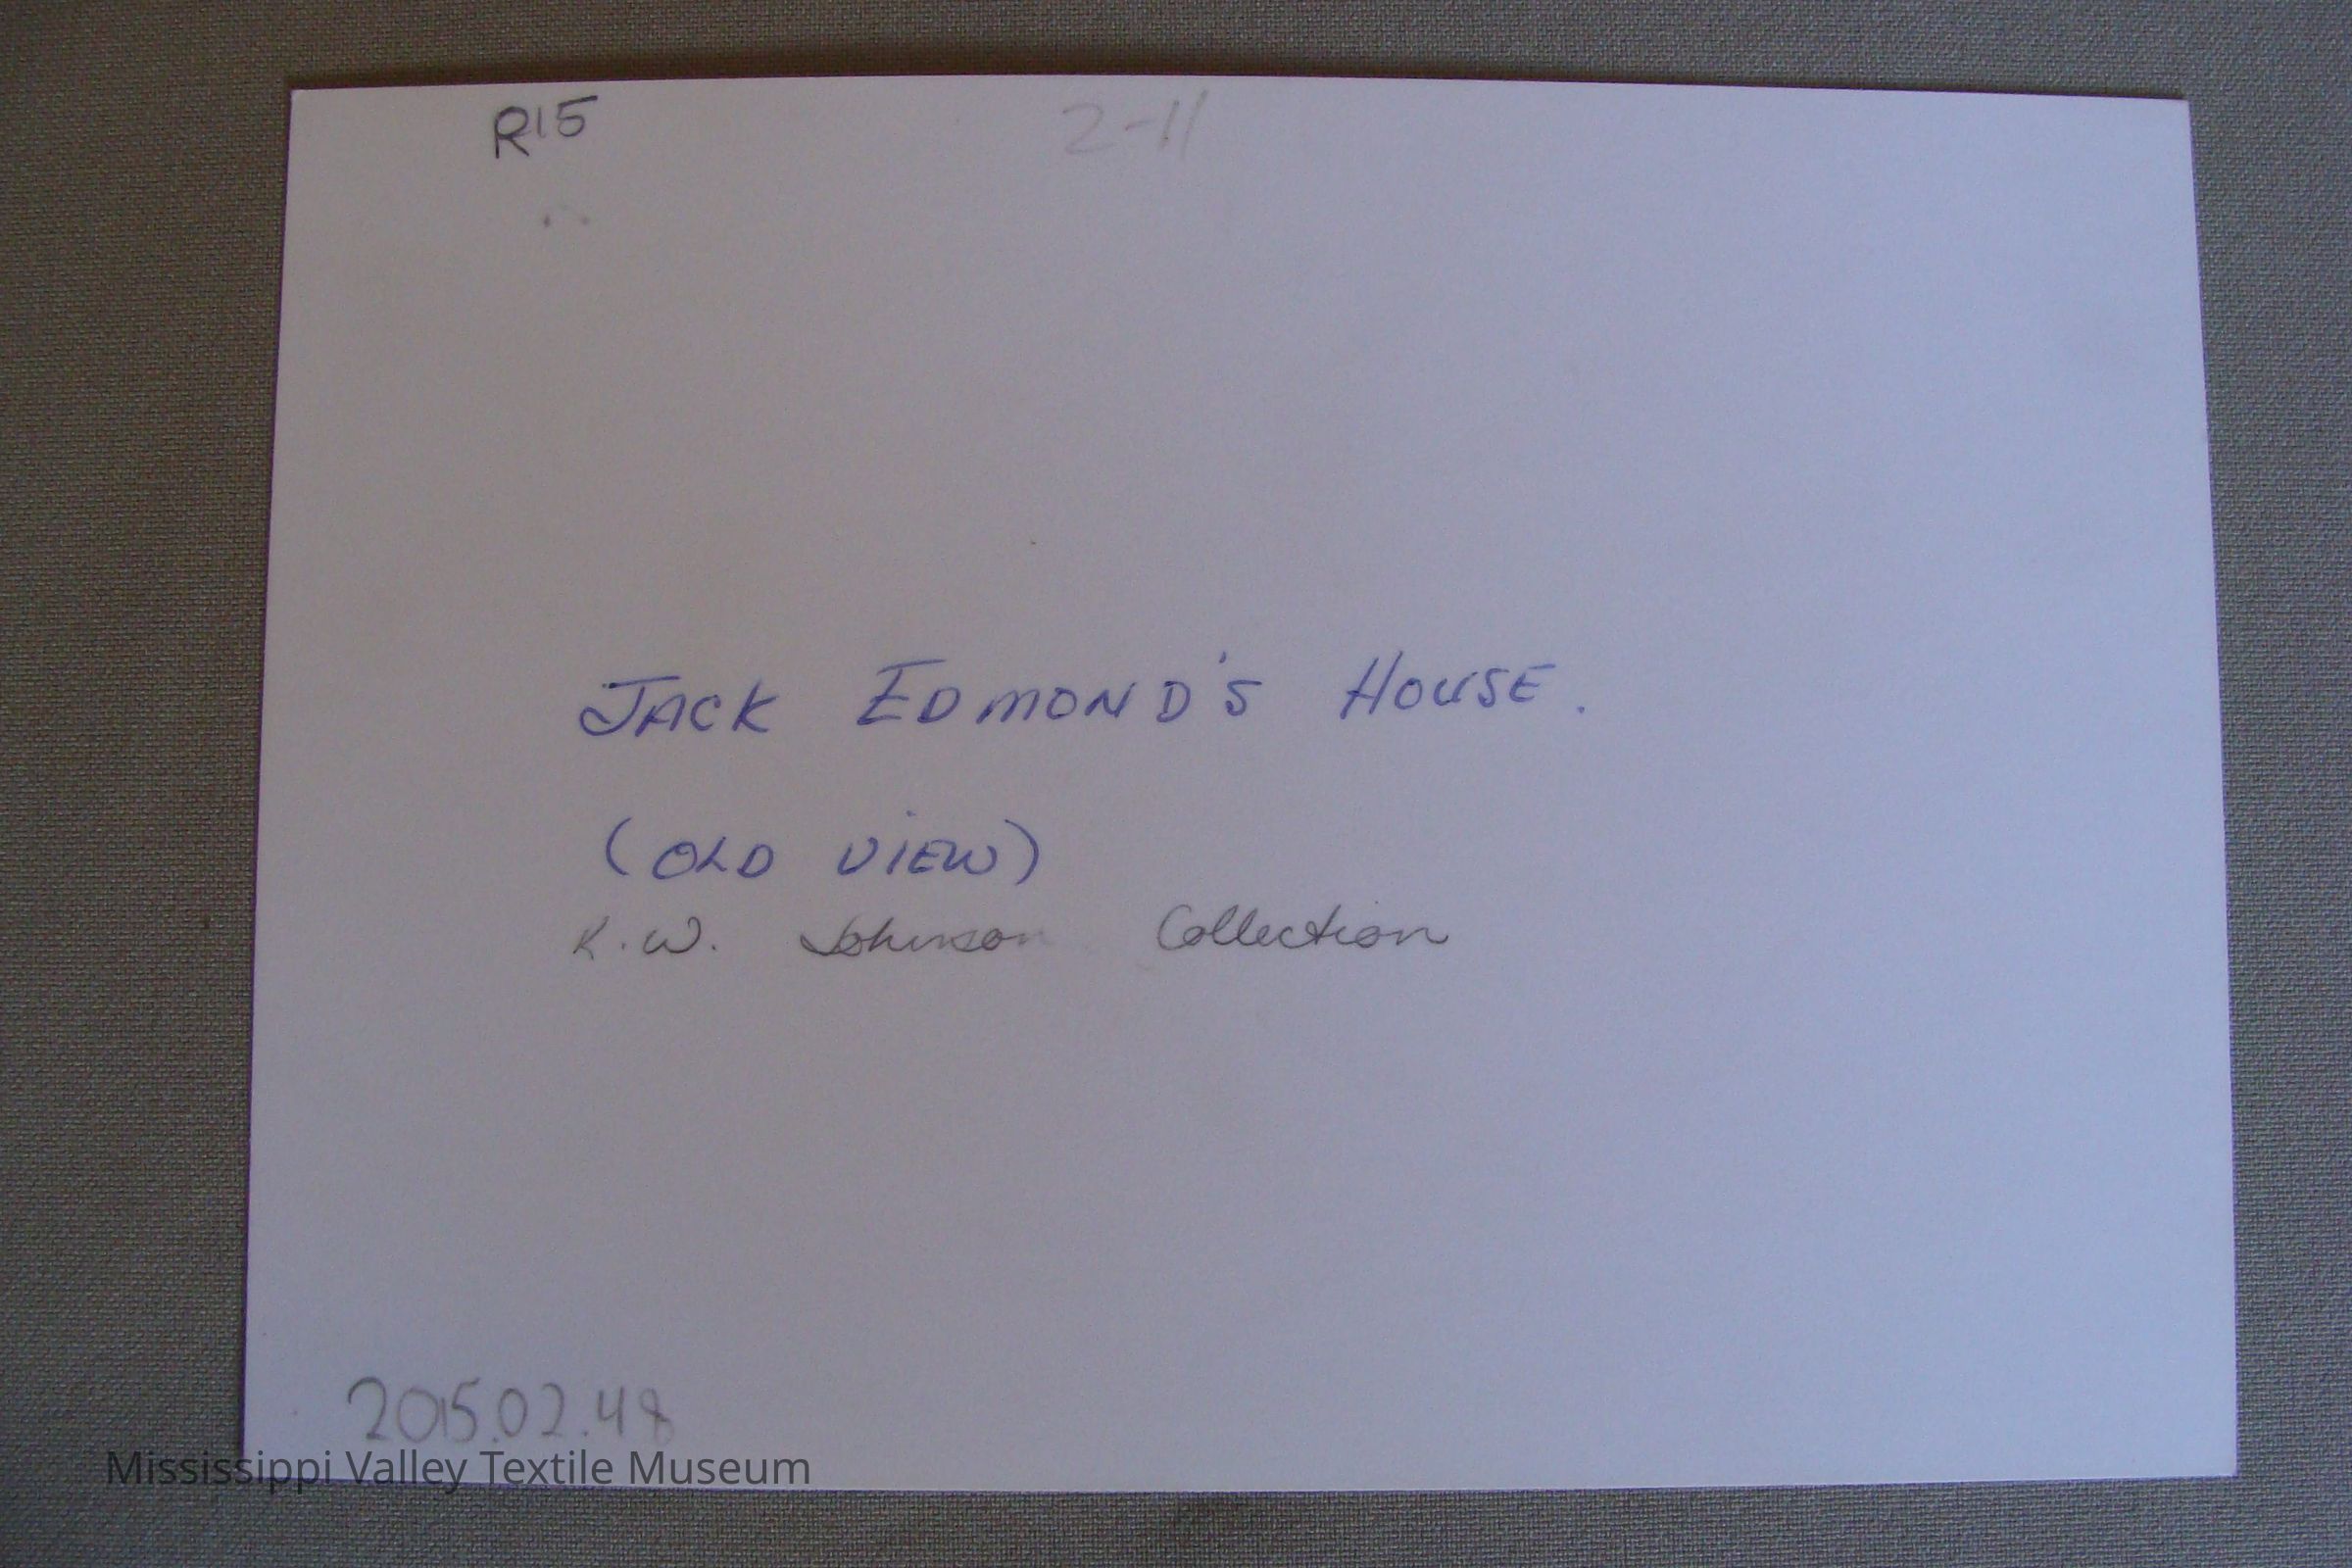 R15 2-11
JACK EDMOND'S HOUSE.
(OLD VIEW)
K.W. Johnson Collection
2015.02.48
Mississippi Valley Textile Museum